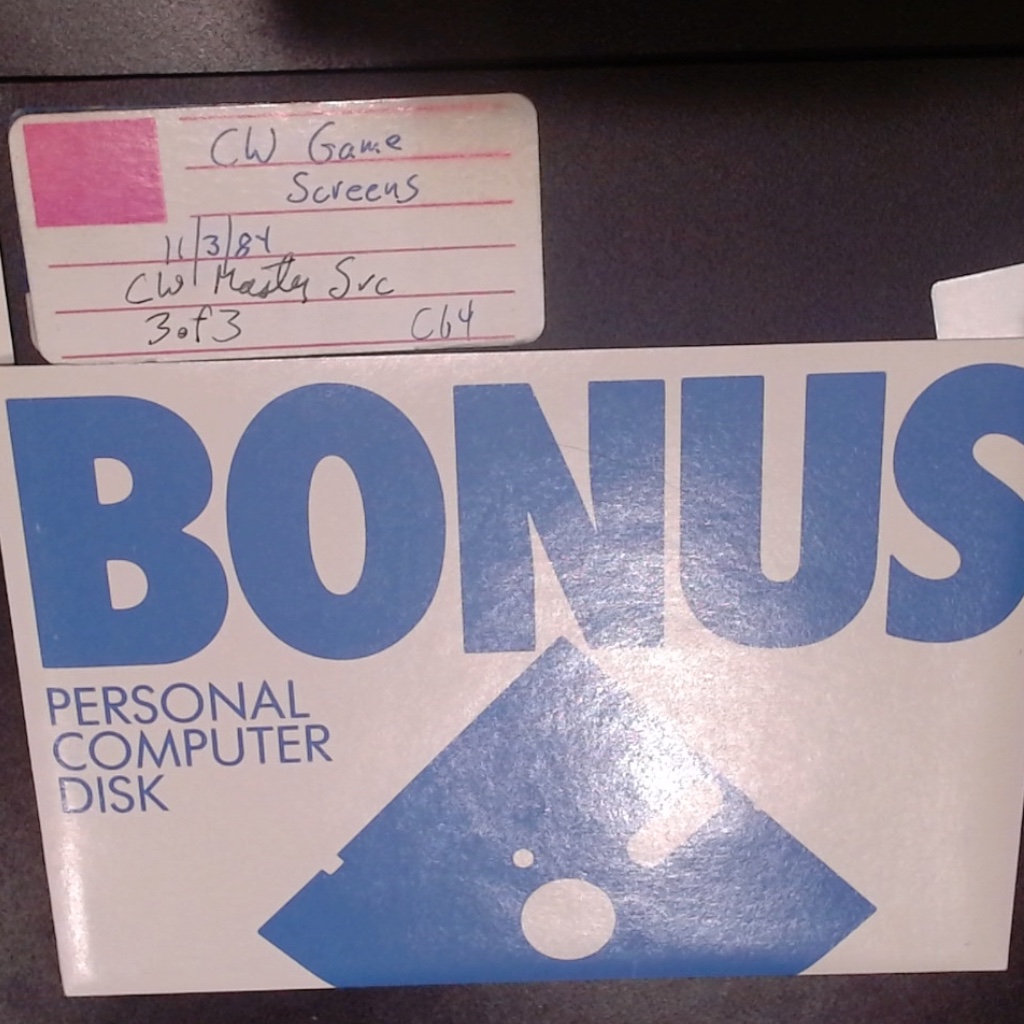 CW Game
Screens
11/3/84
CW Master Src
3 of 3 C64
BONUS
PERSONAL
COMPUTER
DISK